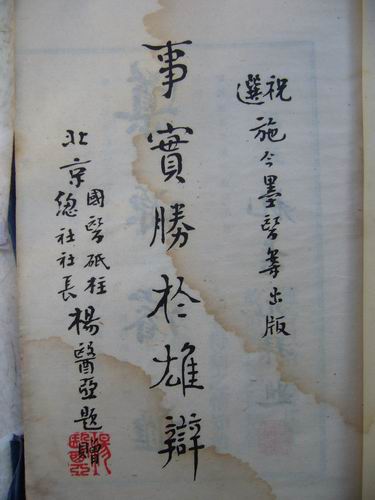 祝選施今墨醫案出版
事實勝於雄辯
北京國醫砥柱總社社長楊醫亞題贈
楊醫亞